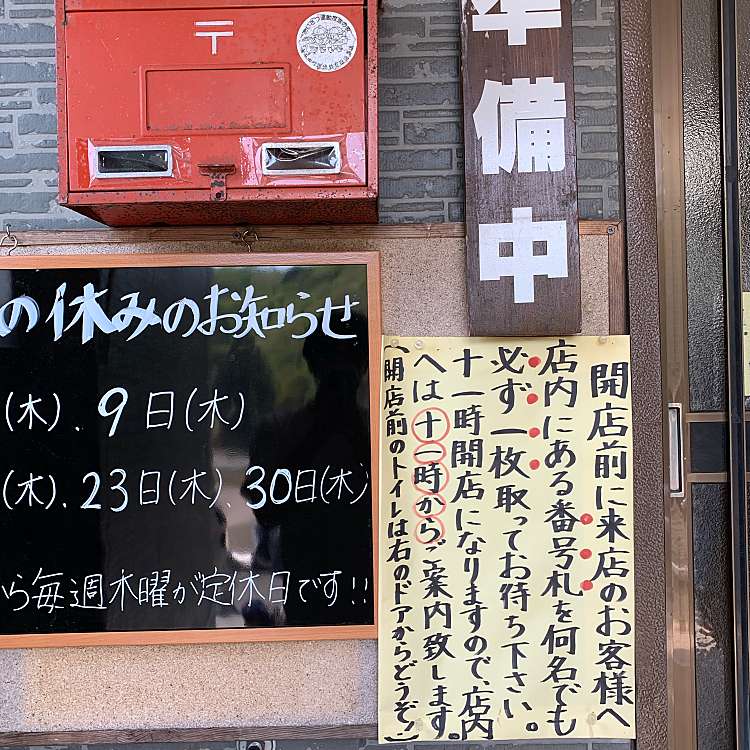 〒
準備中
の休みのお知らせ
(木)、9日(木)
(木)、23日(木)、30日(木)
から毎週木曜が定休日です!!
開店前に来店のお客様へ
店内にある番号札を何名でも
必ず一枚取ってお待ち下さい。
十一時開店になりますので、店内
へは十一時からご案内致します。
(開店前のトイレは右のドアからどうぞ!)